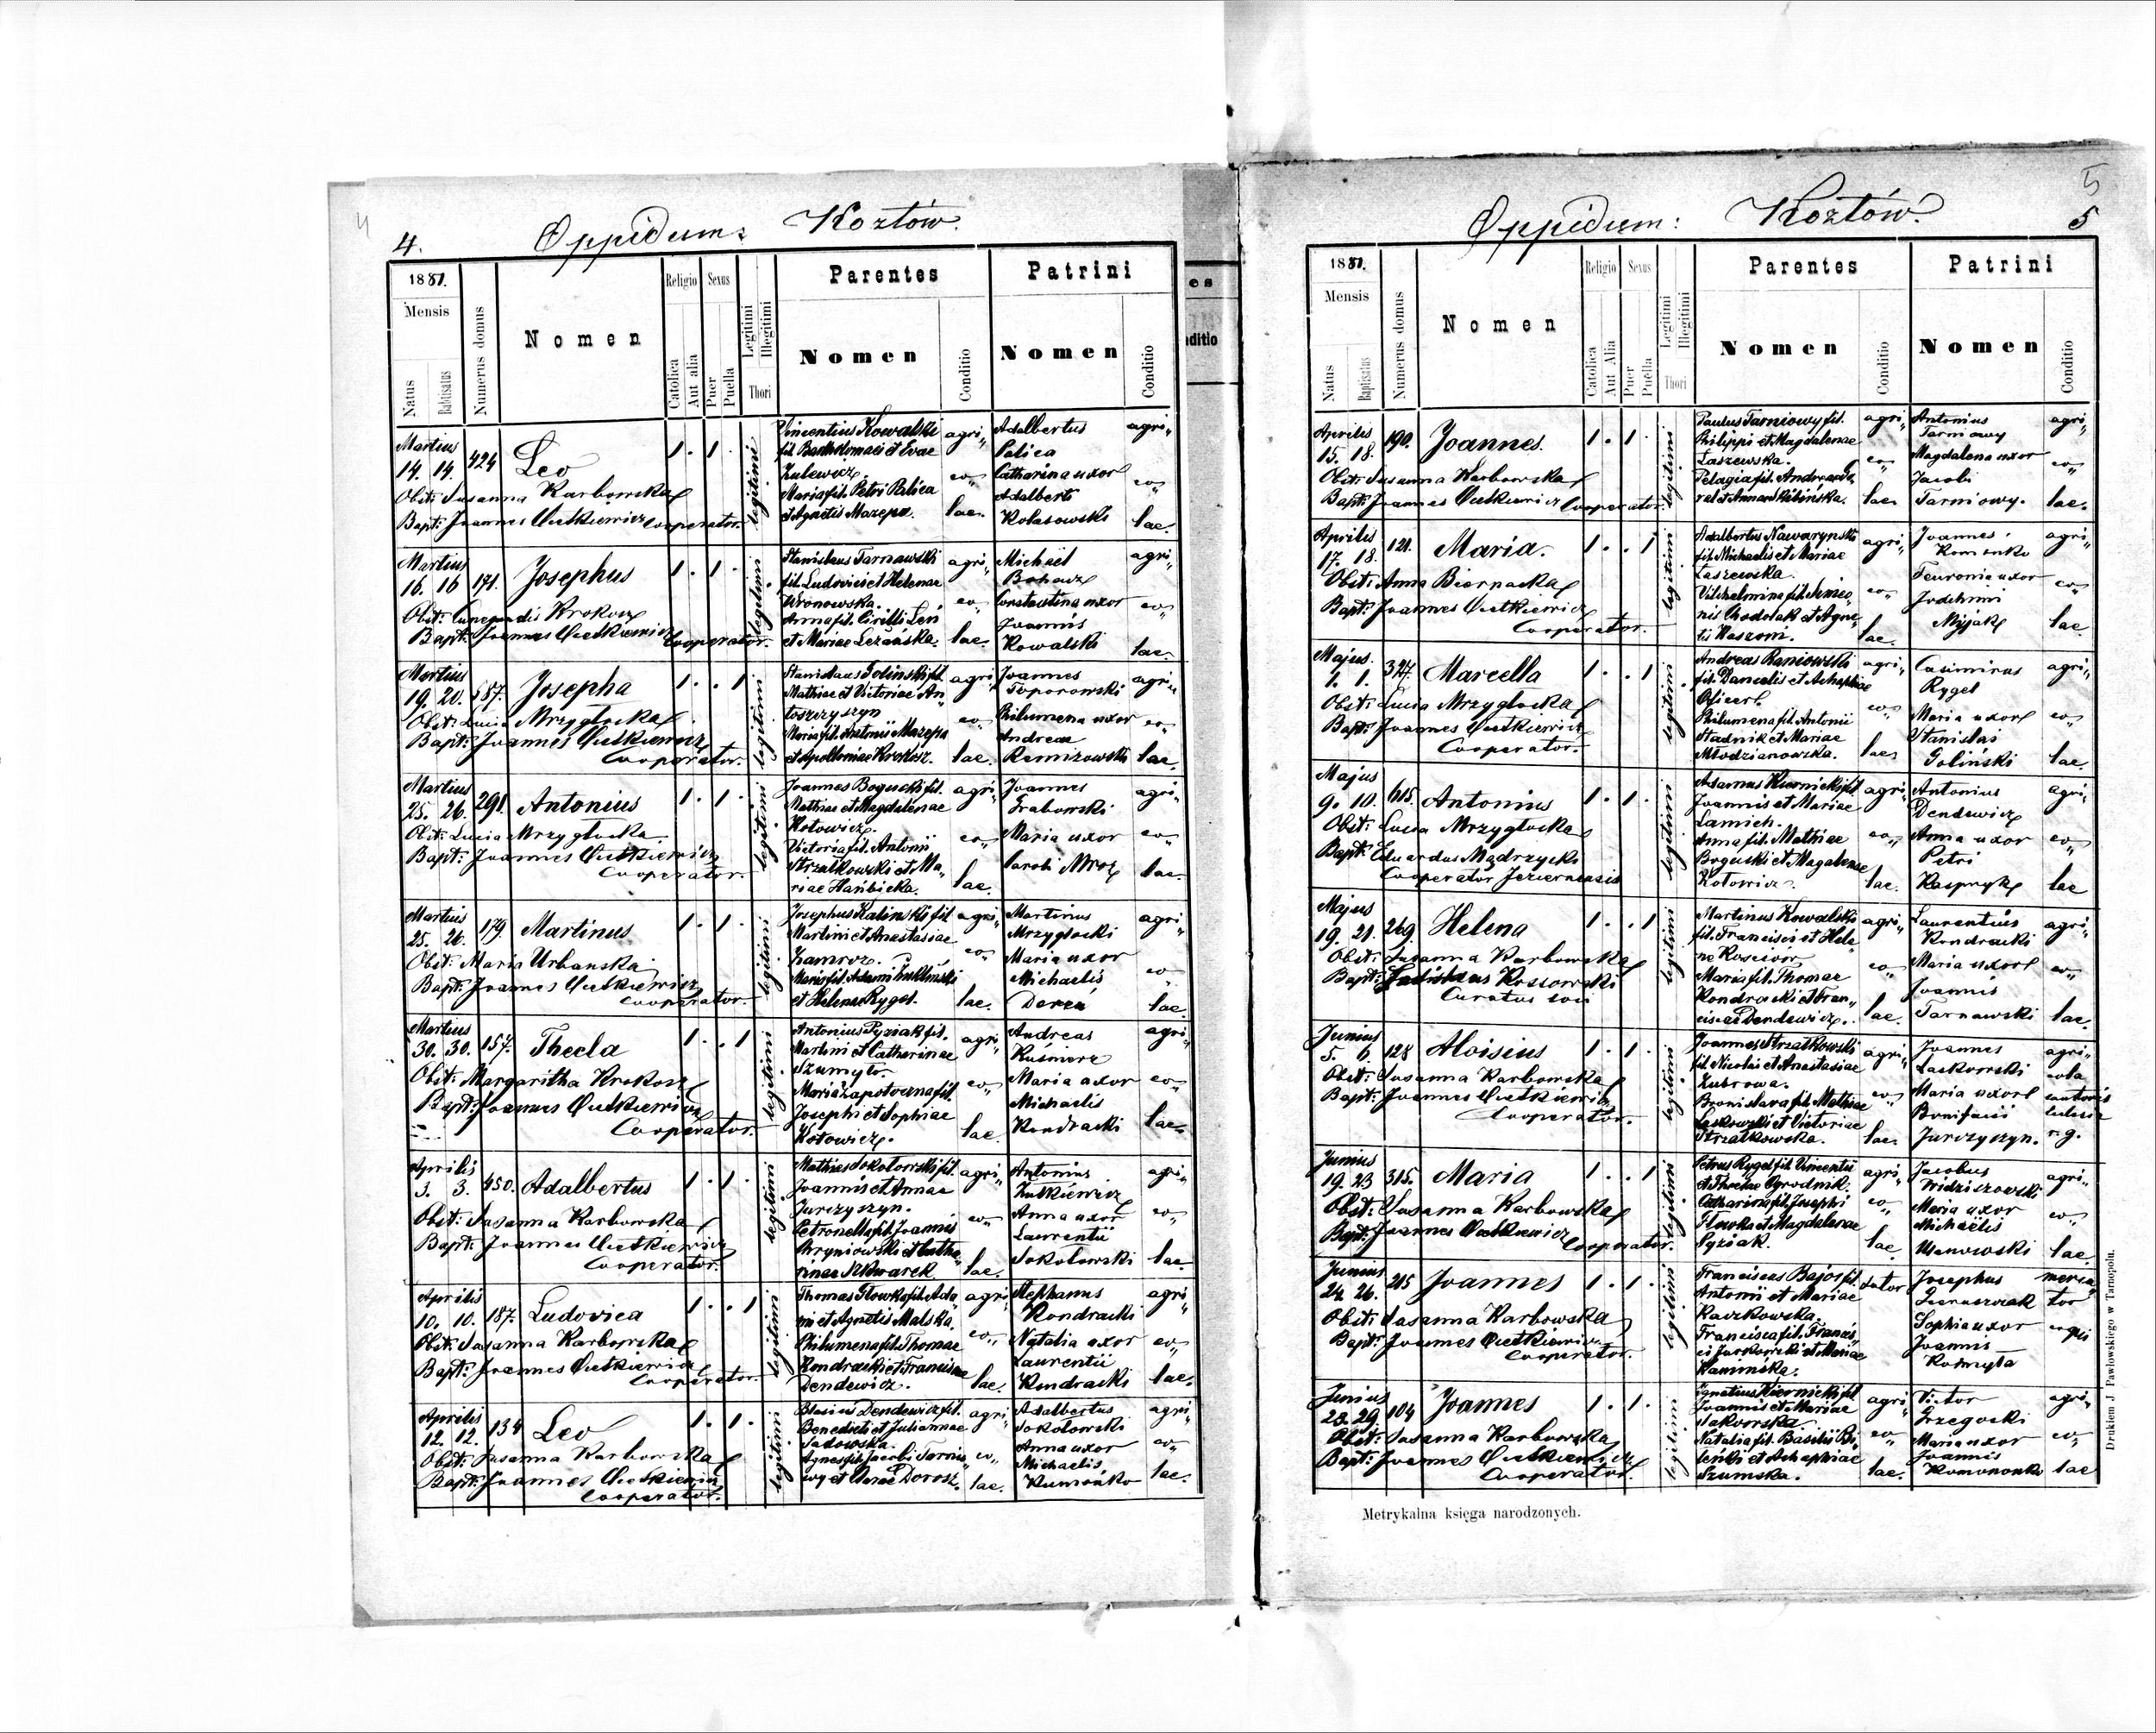 4
4.
Oppidum: Kozłów.
1881.
Mensis
Natus
Babtisatus
Numerus domus
Nomen
Religio
Catolica
Aut alia
Sexus
Puer
Puella
Legitimi
Illegitimi
Thori
Parentes
Nomen
Conditio
Patrini
Nomen
Conditio
Martius
14. 14. 424 Leo 1. 1. legitimi
Obst: Susanna Karbowska
Bapt: Joannes Cooperator.
Vincentius Kowalski agri„
fil. Bartholomaei et Evae
Zulewicz. co„
Maria fil. Petri Palica
et Agnetis Mazepa. lae.
Adalbertus agri„
Palica
Catharina uxor co„
Adalberti
Kolasowski lae.
Martius
16. 16 171. Josephus 1. 1. legitimi
Obst: Krokosz
Bapt: Joannes Cooperator.
Stanislaus Tarnawski agri„
fil. Ludovici et Helenae
Wronowska. co„
Anna fil. Cirilli Leń
et Mariae Leżańska. lae.
Michael agri„
uxor co„
Joannis
Kowalski lae.
Martius
19. 20. 587. Josepha 1. . 1 legitimi
Obst: Lucia Mrzygłocka
Bapt: Joannes
Cooperator.
Stanislaus Goliński fil. agri„
Mathiae et Victoriae An„
toszczyszyn co„
Maria fil. Antonii Mazepa
et Apolloniae Krokosz. lae.
Joannes agri„
Toporowski
Philumena uxor co„
Andreae
lae.
Martius
25. 26. 291. Antonius 1. 1. legitimi
Obst: Lucia Mrzygłocka
Bapt: Joannes
Cooperator.
Joannes Bogucki fil. agri„
Mathiae et Magdalenae
Kotowicz. co„
Victoria fil. Antonii
Strzałkowski et Ma„
riae Hańbicka. lae.
Joannes agri„
Grabowski
Maria uxor co„
Jacobi Mroz lae.
Martius
25. 26. 179. Martinus 1. 1. legitimi
Obst: Maria Urbanska
Bapt: Joannes
Cooperator.
Josephus Kaliński fil. agri„
Martini et Anastasiae
co„
Maria fil. Adami
et Helenae Rygel. lae.
Martinus agri„
Mrzygłocki
Maria uxor
Michaelis co„
lae.
Martius
30. 30. 157. Thecla 1. . 1 legitimi
Obst: Margaritha Krokosz
Bapt: Joannes
Cooperator.
Antonius Pyziak fil. agri„
Martini et Catherinae
Szumyło. co„
Maria Zapotoczna fil.
Josephi et Sophiae
Kotowicz. lae.
Andreas agri„
Kuśnierz
Maria uxor co„
Michaelis
Kondracki lae.
Aprilis
3. 3. 450. Adalbertus 1. 1. legitimi
Obst: Susanna Karbowska
Bapt: Joannes
Cooperator.
Mathias Sokołowski fil. agri„
Joannis et Annae
Jurczyszyn. co„
Petronella fil. Joannis
Hryniowski et Catha„
rinae Szkwarek lae.
Antonius agri„
Zutkiewicz
Anna uxor co„
Laurentii
Sokołowski lae.
Aprilis
10. 10. 187. Ludovica 1. . 1 legitimi
Obst: Susanna Karbowska
Bapt: Joannes
Cooperator.
Thomas Głowka fil. Ada„ agri„
mi et Agnetis Malska. co„
Philumena fil. Thomae
Kondracki et Franciscae
Dendewicz. lae.
Stephanus agri„
Kondracki
Natalia uxor co„
Laurentii
Kondracki lae.
Aprilis
12. 12. 134 Leo 1. 1. legitimi
Obst: Susanna Karbowska
Bapt: Joannes
Cooperator.
Blasius Dendewicz fil. agri„
Benedicti et Juliannae
Sadowska. co„
Agnes fil. Jacobi Tarnio„
wy et Annae Dorosz. lae.
Adalbertus agri„
Sokołowski
Anna uxor co„
Michaelis
lae.
5
5
Oppidum: Kozłów.
1881.
Mensis
Natus
Baptisatus
Numerus domus
Nomen
Religio
Catolica
Aut Alia
Sexus
Puer
Puella
Legitimi
Illegitimi
Thori
Parentes
Nomen
Conditio
Patrini
Nomen
Conditio
Aprilis
15. 18. 190. Joannes. 1. 1. legitimi
Obst: Susanna Karbowska
Bapt: Joannes Cooperator.
Paulus Tarniowy fil. agri„
Philippi et Magdalenae
Łaszewska. co„
Pelagia fil.
lae.
Antonius agri„
Tarniowy
Magdalena uxor co„
Jacobi
Tarniowy. lae.
Aprilis
17. 18. 121. Maria. 1. . 1 legitimi
Obst: Anna Biernacka
Bapt: Joannes
Cooperator.
Adalbertus Nawaryński agri„
fil. Michaelis et Mariae
Łaszewska. co„
Vilhelmina fil. Simeo„
nis Chodolak et Agne„
tis lae.
Joannes agri„
uxor co„
Joachimi
lae.
Majus
1. 1. 347. Marcella 1. . 1 legitimi
Obst: Lucia Mrzygłocka
Bapt: Joannes
Cooperator.
Andreas Raniowski agri„
fil. Danielis et Achaphiae
co„
Philumena fil. Antonii
Stadnik et Mariae
Młodzianowska. lae.
Casimirus agri„
Rygel
Maria uxor co„
Stanislai
Goliński lae.
Majus
9. 10. 615. Antonius 1. 1. legitimi
Obst: Lucia Mrzygłocka
Bapt: Eduardus Mądrzycki
Cooperator Jeziernensis
Adamus Kiernicki fil. agri„
Joannis et Mariae
Lamich. co„
Anna fil. Mathiae
Bogucki et Magdalenae
Kotowicz. lae.
Antonius agri„
Dendewicz
Anna uxor co„
Petri
Kaspryk lae
Majus
19. 21. 269. Helena 1. . 1 legitimi
Obst: Susanna Karbowska
Bapt: Ladislaus Kossowski
Curatus loci
Martinus Kowalski agri„
fil. Francisci et Hele
nae co„
Maria fil. Thomae
Kondracki et Fran„
ciscae Dendewicz. lae.
Laurentius agri„
Kondracki
Maria uxor co„
Joannis
Tarnawski lae.
Junius
5. 6. 128 Aloisius 1. 1. legitimi
Obst: Susanna Karbowska
Bapt: Joannes
Cooperator.
Joannes Strzałkowski agri„
fil. Nicolai et Anastasiae
Zubrowa. co„
Bronislava fil. Mathiae
Laskowski et Victoriae
Strzałkowska. lae.
Joannes agri„
Laskowski cola
Maria uxor cantoris
Bonifacii
Jurczyszyn. r. g.
Junius
19. 23 315. Maria 1. . 1 legitimi
Obst: Susanna Karbowska
Bapt: Joannes Cooperator.
Petrus Rygel fil. Vincentii agri„
et Theclae Ogrodnik. co„
Catharina fil. Josephi
Głowka et Magdalenae
Pyziak. lae
Jacobus agri„
Maria uxor co„
Michaelis
lae
Junius
24. 26. 215 Joannes 1. 1. legitimi
Obst: Susanna Karbowska
Bapt: Joannes
Cooperator.
Franciscus Bajor fil.
Antonii et Mariae
Raczkowska.
Francisca fil. Francis„
ci Jurkowski et Mariae
Kamińska.
Josephus merca„
tor
Sophia uxor
Joannis
Romyła
Junius
28. 29. 104 Joannes 1. 1. legitimi
Obst: Susanna Karbowska
Bapt: Joannes
Cooperator.
Ignatius Kiernicki fil. agri„
Joannis et Mariae
co„
Natalia fil. Basilii Bi„
leńki et Achaphiae
Szumska. lae.
Victor agri„
Grzegocki
Maria uxor co„
Joannis
lae
Metrykalna księga narodzonych.
Drukiem J. Pawłowskiego w Tarnopolu.